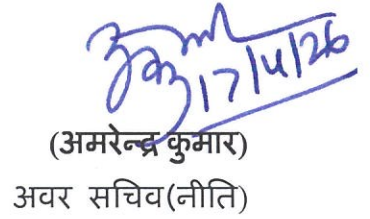 17/4/26
(अमरेन्द्र कुमार)
अवर सचिव(नीति)